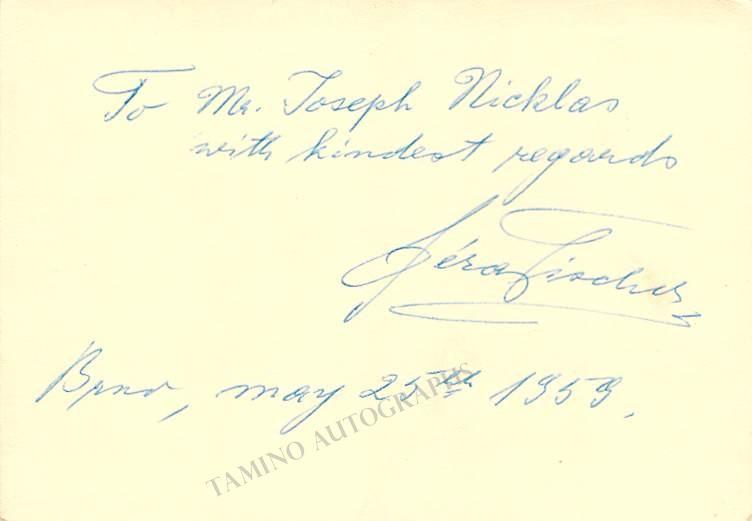 To Mr. Joseph Nicklas
with kindest regards
Géza Fischer
Brno, may 25th 1959.
TAMINO AUTOGRAPHS